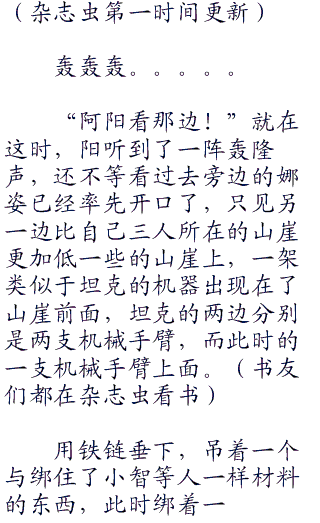 （杂志虫第一时间更新）
轰轰轰。。。。。
“阿阳看那边！”就在
这时，阳听到了一阵轰隆
声，还不等看过去旁边的娜
姿已经率先开口了，只见另
一边比自己三人所在的山崖
更加低一些的山崖上，一架
类似于坦克的机器出现在了
山崖前面，坦克的两边分别
是两支机械手臂，而此时的
一支机械手臂上面。（书友
们都在杂志虫看书）
用铁链垂下，吊着一个
与绑住了小智等人一样材料
的东西，此时绑着一